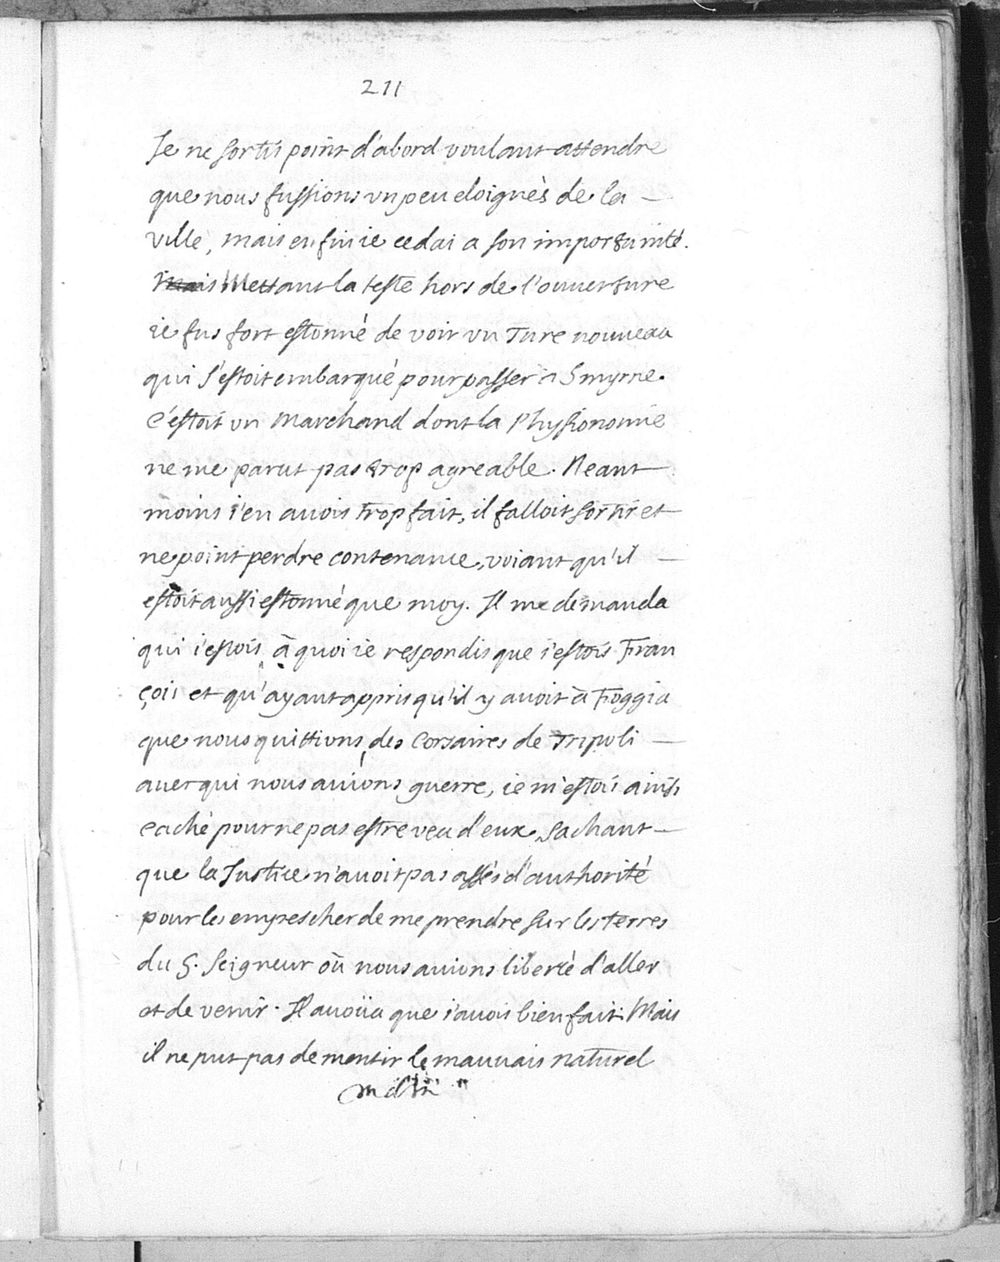 211
Je ne sortis point d'abord voulant attendre
que nous fussions un peu eloignès de la
ville, mais enfin ie cedai a son importunité.
Mettant la teste hors de l'ouuerture
ie fus fort estonné de voir vn Turc nouueau
qui s'estoit embarqué pour passer a Smyrne.
C'estoit vn Marchand dont la Physionomie
ne me parut pas trop agreable. Neant
moins i'en auois trop fait, il falloit sortir et
ne point perdre contenance, voiant qu'il
estoit aussi estonné que moy. Il me demanda
qui i'estois à quoi ie respondis que i'estois Fran
çois et qu'ayant appris qu'il y auoit à Foggia
que nous quittions, des Corsaires de Tripoli
auec qui nous auions guerre, ie m'estois ainsi
caché pour ne pas estre veu d'eux, Sachant
que la Justice n'auoit pas assés d'authorité
pour les empescher de me prendre sur les terres
du G. Seigneur où nous auions liberté d'aller
et de venir. Il avoüa que i'auois bien fait. Mais
il ne put pas dementir le mauuais naturel